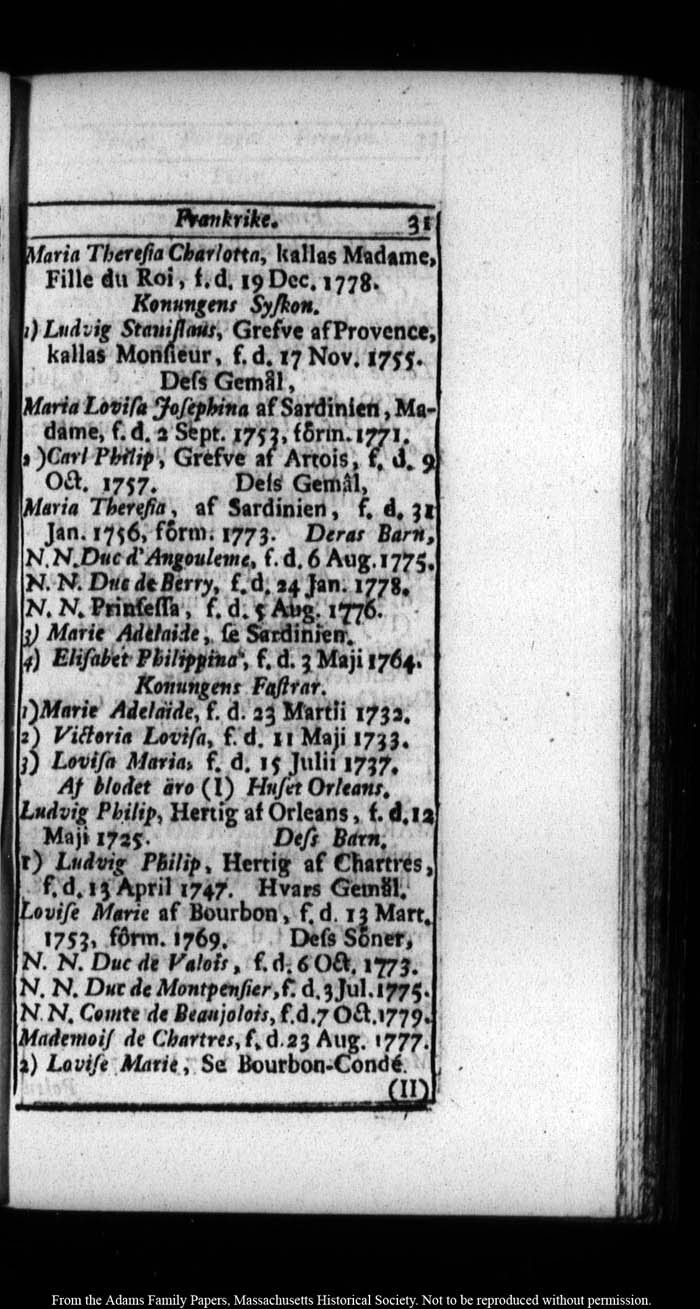 Frankrike. 31
Maria Theresia Charlotta, kallas Madame,
Fille du Roi, f. d. 19 Dec. 1778.
Konungens Syſkon.
1) Ludvig Staniſlaus, Grefve af Provence,
kallas Monſieur, f. d. 17 Nov. 1755.
Deſs Gemâl,
Maria Loviſa Joſephina af Sardinien, Ma-
dame, f. d. 2 Sept. 1753, fôrm. 1771.
2) Carl Philip, Grefve af Artois, f. d. 9
Oct. 1757. Deſs Gemâl,
Maria Thereſia, af Sardinien, f. d. 31
Jan. 1756, fôrm. 1773. Deras Barn,
N. N. Duc d'Angouleme, f. d. 6 Aug. 1775.
N. N. Duc de Berry, f. d. 24 Jan. 1778.
N. N. Prinſeſſa, f. d. 5 Aug. 1776.
3) Marie Adelaide, ſe Sardinien.
4) Eliſabet Philippina, f. d. 3 Maji 1764.
Konungens Faſtrar.
1) Marie Adelaide, f. d. 23 Martii 1732.
2) Victoria Loviſa, f. d. 11 Maji 1733.
3) Loviſa Maria, f. d. 15 Julii 1737.
Af blodet äro (I) Huſet Orleans.
Ludvig Philip, Hertig af Orleans, f. d. 12
Maji 1725. Deſs Barn.
1) Ludvig Philip, Hertig af Chartres,
f. d. 13 April 1747. Hvars Gemâl.
Loviſe Marie af Bourbon, f. d. 13 Mart.
1753, fôrm. 1769. Deſs Sôner,
N. N. Duc de Valois, f. d. 6 Oct. 1773.
N. N. Duc de Montpenſier, f. d. 3 Jul. 1775.
N. N. Comte de Beaujolois, f. d. 7 Oct. 1779.
Mademoiſ de Chartres, f. d. 23 Aug. 1777.
2) Loviſe Marie, Se Bourbon-Condé.
(II)
From the Adams Family Papers, Massachusetts Historical Society. Not to be reproduced without permission.